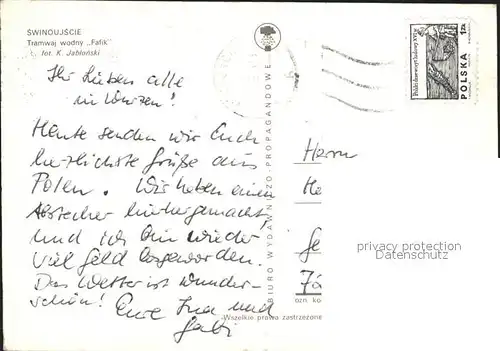 ŚWINOUJŚCIE
Tramwaj wodny „Fafik"
fot. K. Jabłoński
Ihr Lieben alle
in Wurzen!
Heute senden wir Euch
herzlichste Grüße aus
Polen. Wir haben einen
Abstecher hierhergemacht,
und ich bin wieder
viel Geld losgeworden.
Das Wetter ist wunder-
schön! Eure Ina und
Gabi
Wszelkie prawa zastrzeżone
BIURO WYDAWNICZO-PROPAGANDOWE
POLSKA
1 ZŁ
Herrn
He
Ge
privacy protection
Datenschutz